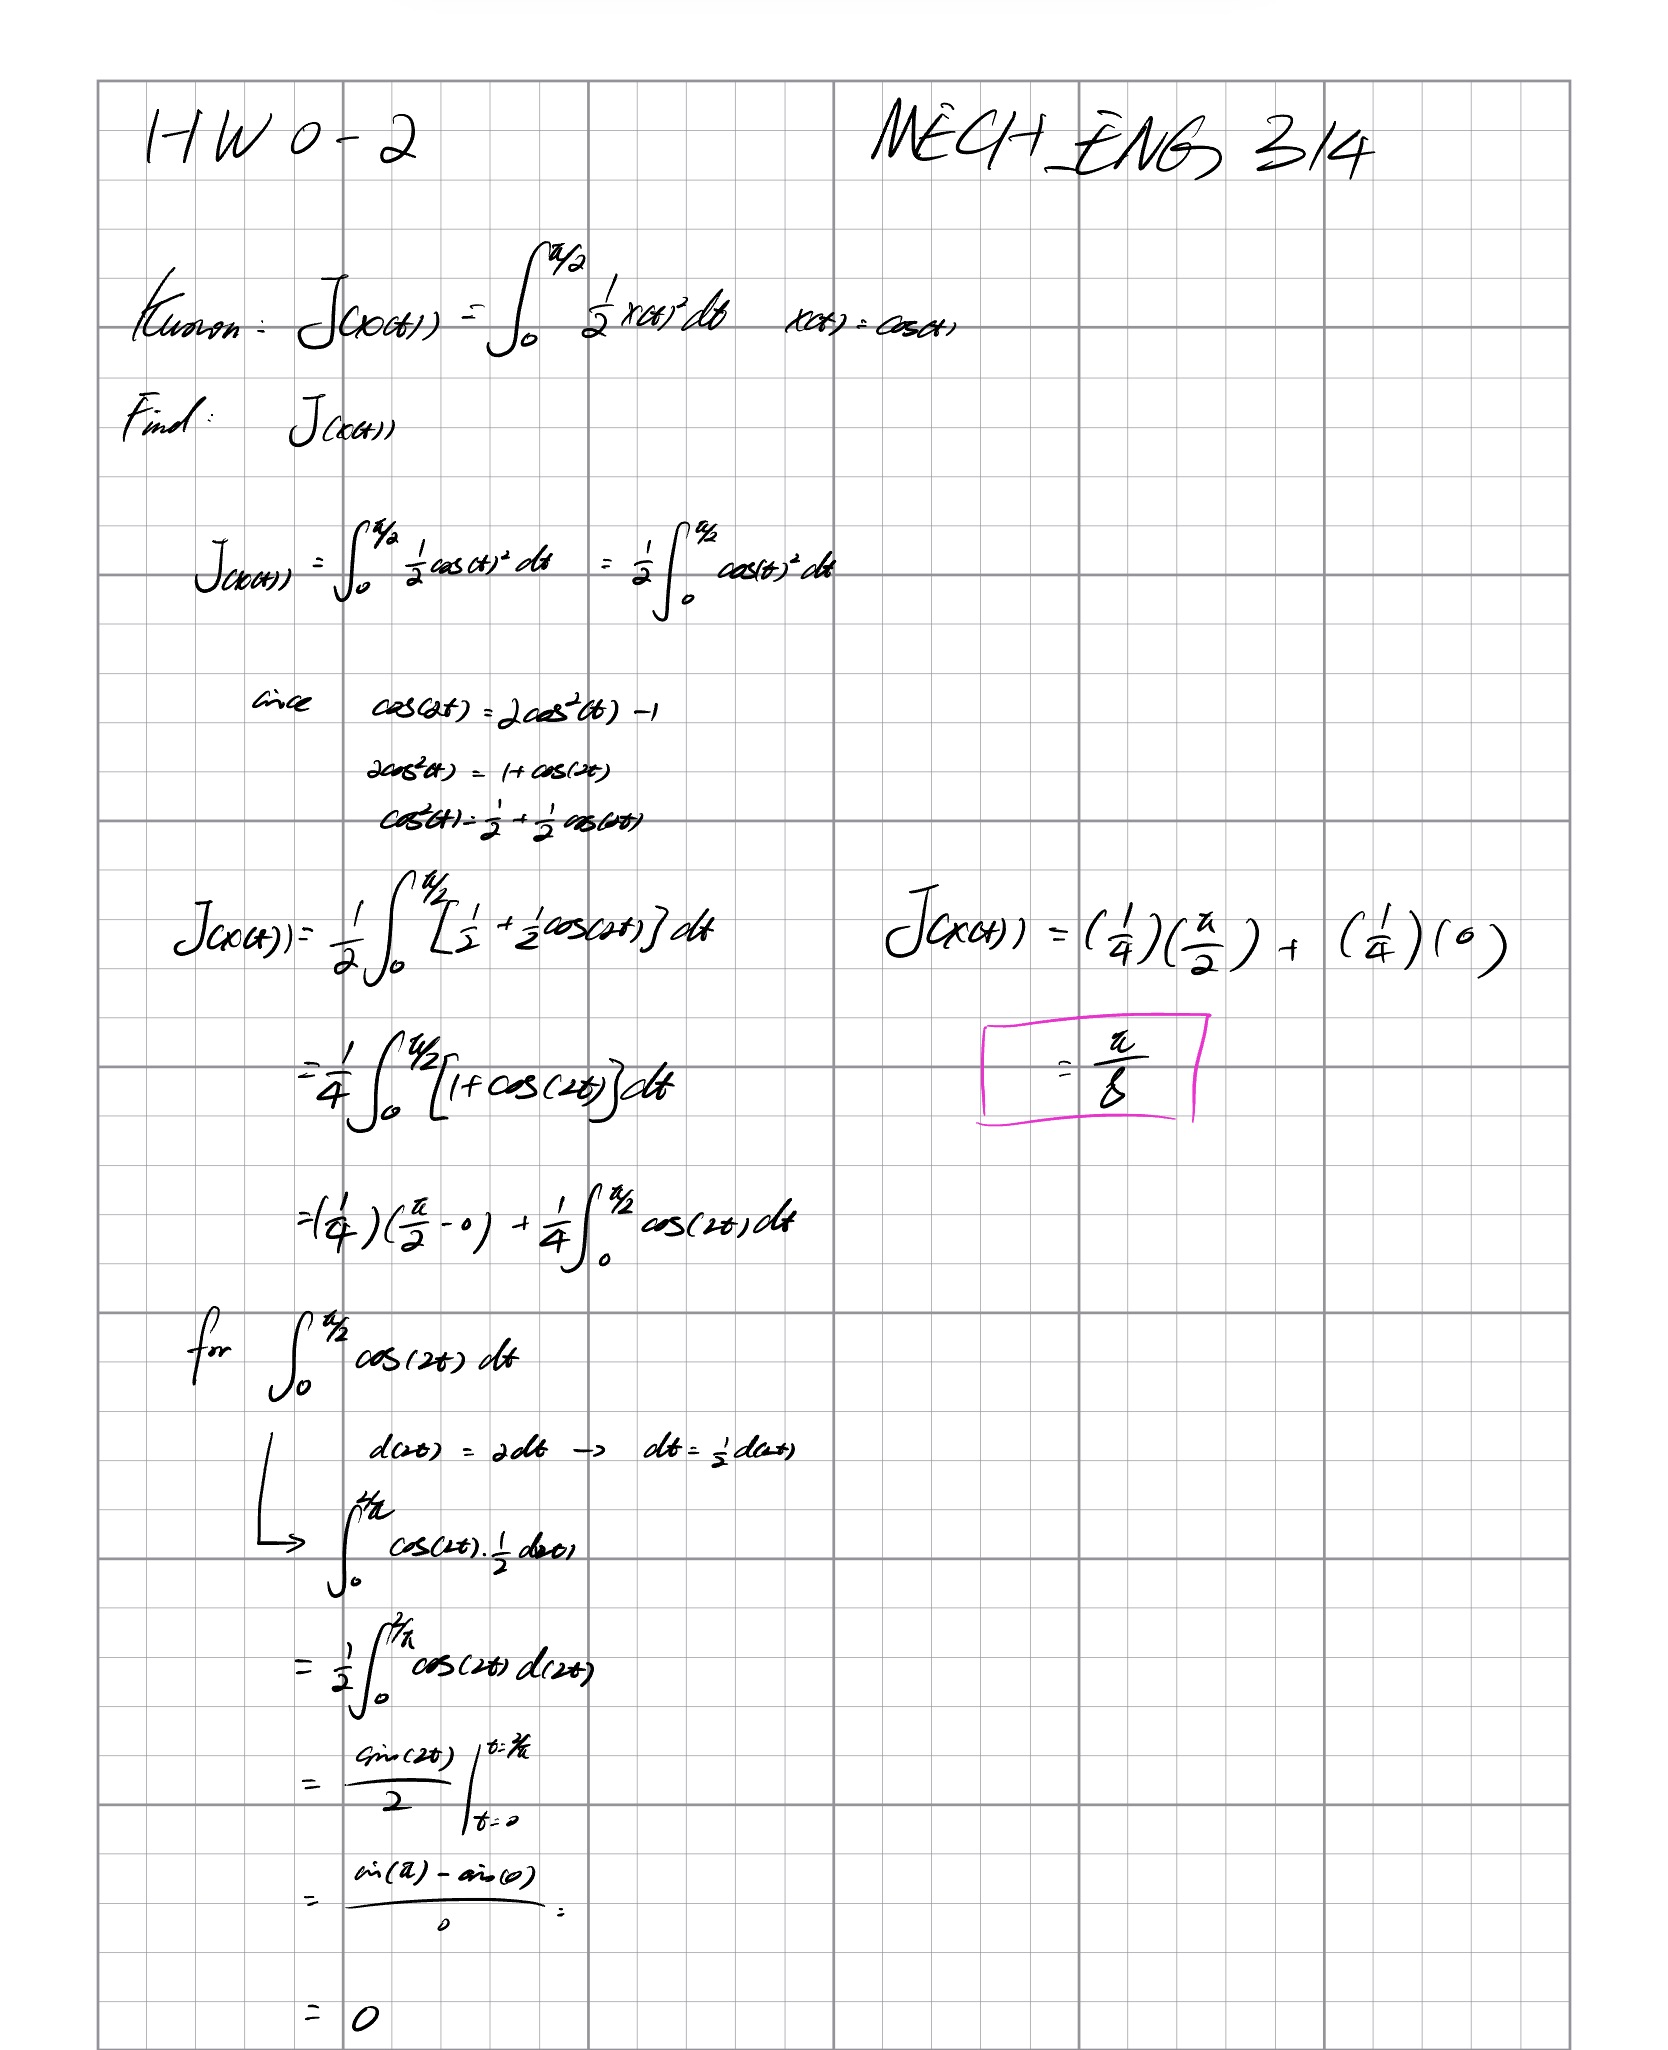 HW 0-2
MECH_ENG 314
Known: J(x(t)) = ∫₀^{π/2} 1/2 x(t)² dt x(t) = cos(t)
Find: J(x(t))
J(x(t)) = ∫₀^{π/2} 1/2 cos(t)² dt = 1/2 ∫₀^{π/2} cos(t)² dt
since cos(2t) = 2cos²(t) - 1
2cos²(t) = 1 + cos(2t)
cos²(t) = 1/2 + 1/2 cos(2t)
J(x(t)) = 1/2 ∫₀^{π/2} [1/2 + 1/2 cos(2t)] dt
= 1/4 ∫₀^{π/2} [1 + cos(2t)] dt
= (1/4)(π/2 - 0) + 1/4 ∫₀^{π/2} cos(2t) dt
for ∫₀^{π/2} cos(2t) dt
d(2t) = 2dt → dt = 1/2 d(2t)
∫₀^{2/π} cos(2t) · 1/2 d(2t)
= 1/2 ∫₀^{2/π} cos(2t) d(2t)
= sin(2t)/2 |_{t=0}^{t=2/π}
= (sin(π) - sin(0))/0 =
= 0
J(x(t)) = (1/4)(π/2) + (1/4)(0)
= π/8